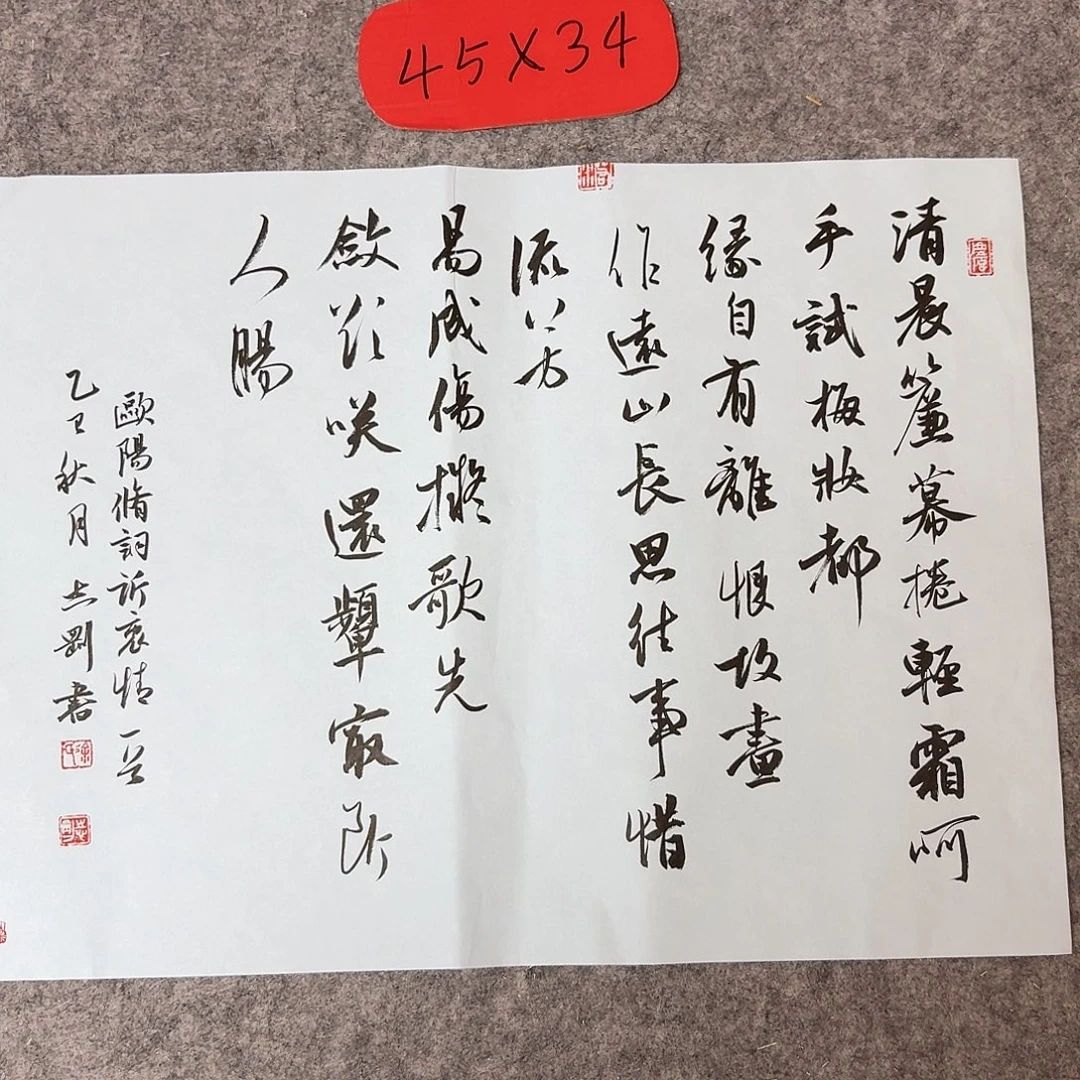 45X34
清晨簾幕捲輕霜呵
手試梅妝都
緣自有離恨故畫
作遠山長思往事惜
流芳
易成傷擬歌先
斂欲咲還顰寂斷
人腸
歐陽脩詞訴衷情一首
乙巳秋月志剛書